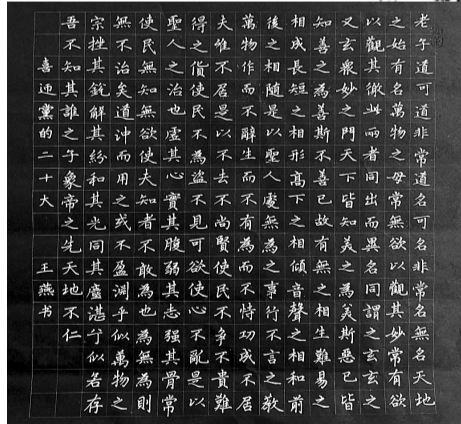 老子道可道非常道名可名非常名無名天地
之始有名萬物之母常無欲以觀其妙常有欲
以觀其徼此兩者同出而異名同謂之玄玄之
又玄衆妙之門天下皆知美之為美斯惡已皆
知善之為善斯不善已故有無之相生難易之
相成長短之相形高下之相傾音聲之相和前
後之相隨是以聖人處無為之事行不言之教
萬物作而不辭生而不有為而不恃功成不居
夫惟不居是以不去不尚賢使民不爭不貴難
得之貨使民不為盜不見可欲使心不亂是以
聖人之治也虛其心實其腹弱其志強其骨常
使民無知無欲使夫知者不敢為也為無為則
無不治矣道沖而用之或不盈淵乎似萬物之
宗挫其銳解其紛和其光同其塵湛兮似若存
吾不知其誰之子象帝之先天地不仁
喜迎黨的二十大 王燕书